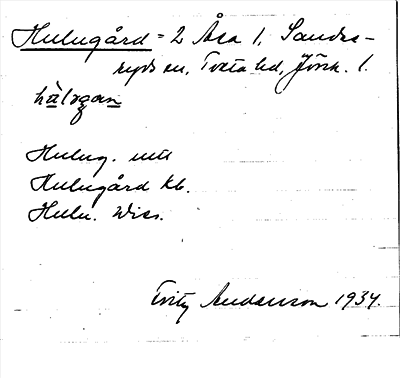 Hulugård = 2 Åsa 1, Sands-
ryds sn, Tveta hd, Jönk. l.
hålugan
Hulug. utt
Hulugård kb.
Hulu. Wiss.
Fritz Andersson 1934.